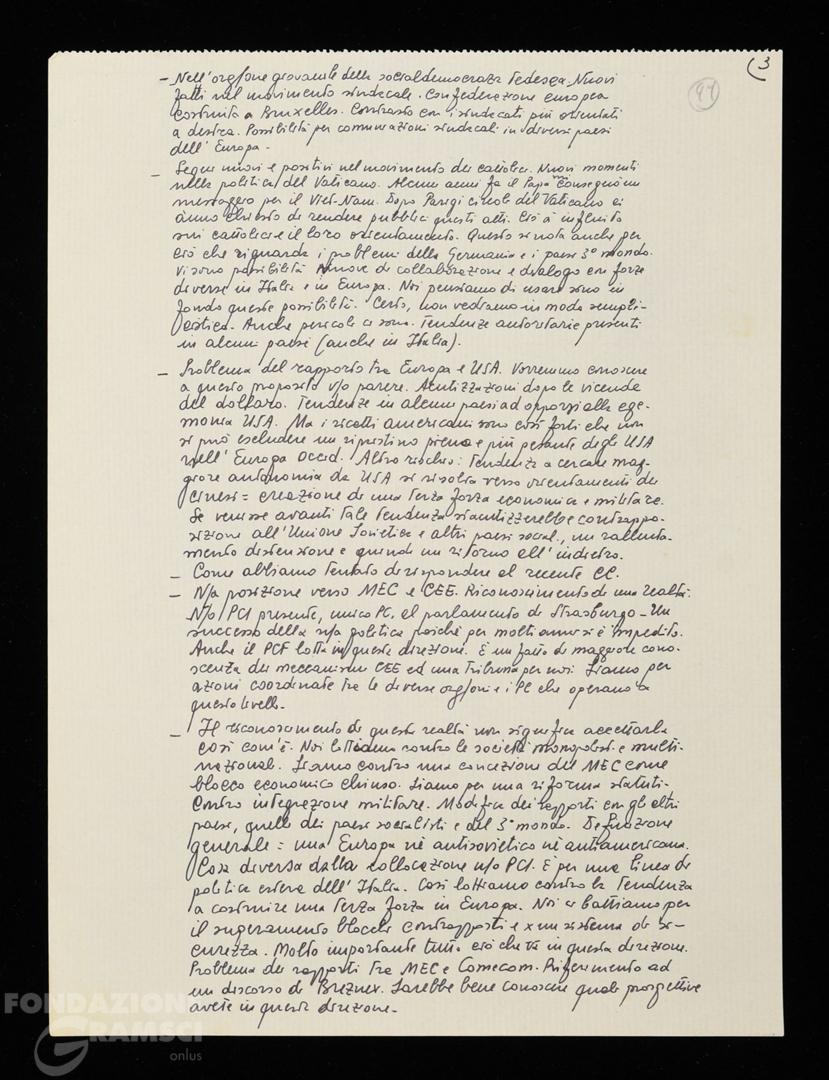 (3
97
– Nell'org/one giovanile della socialdemocrazia tedesca. Nuovi
fatti nel movimento sindacale. Confederazione europea
costruita a Bruxelles. Contrasto con i sindacati più orientati
a destra. Possibilità per comuni azioni sindacali in diversi paesi
dell'Europa.
– Segni nuovi e positivi nel movimento dei cattolici. Nuovi momenti
nella politica del Vaticano. Alcuni anni fa il Papa mi consegnò un
messaggio per il Viet-Nam. Dopo Parigi circoli del Vaticano ci
anno chiesto di rendere pubblici questi atti. Ciò à influito
sui cattolici e il loro orientamento. Questo si nota anche per
ciò che riguarda i problemi della Germania e i paesi 3° mondo.
Vi sono possibilità nuove di collaborazione e dialogo con forze
diverse in Italia e in Europa. Noi pensiamo di usare sino in
fondo queste possibilità. Certo, non vediamo in modo sempli-
cistico. Anche pericoli ci sono. Tendenze autoritarie presenti
in alcuni paesi (anche in Italia).
– Problema del rapporto tra Europa e USA. Vorremmo conoscere
a questo proposito v/o parere. Acutizzazioni dopo le vicende
del dollaro. Tendenze in alcuni paesi ad opporsi alla ege-
monia USA. Ma i ricatti americani sono così forti che non
si può escludere un ripristino pieno e più pesante degli USA
nell'Europa occid. Altro rischio: tendenza a cercare mag-
giore autonomia da USA si risolva verso orientamenti dei
cinesi = creazione di una terza forza economica e militare.
Se venisse avanti tale tendenza si acutizzerebbe contrappo-
sizione all'Unione Sovietica e altri paesi social., un rallenta-
mento distensione e quindi un ritorno all'indietro.
– Come abbiamo tentato di rispondere al recente CC.
– N/a posizione verso MEC e CEE. Riconoscimento di una realtà.
N/o PCI presente, unico PC, al parlamento di Strasburgo – Un
successo della n/a politica poiché per molti anni si è impedito.
Anche il PCF lotta in questa direzione. È un fatto di maggiore cono-
scenza dei meccanismi CEE ed una tribuna per noi. Siamo per
azioni coordinate tra le diverse org/oni e i PC che operano a
questo livello.
– Il riconoscimento di questa realtà non significa accettarla
così com'è. Noi lottiamo contro le società monopolist. e multi-
nazionali. Siamo contro una concezione del MEC come
blocco economico chiuso. Siamo per una riforma statuti.
Contro integrazione militare. Modifica dei rapporti con gli altri
paesi, quelli dei paesi socialisti e del 3° mondo. Definizione
generale = una Europa né antisovietica né antiamericana.
Cosa diversa dalla collocazione n/o PCI. È per una linea di
politica estera dell'Italia. Così lottiamo contro la tendenza
a costruire una terza forza in Europa. Noi ci battiamo per
il superamento blocchi contrapposti e x un sistema di si-
curezza. Molto importante tutto ciò che va in questa direzione.
Problema dei rapporti tra MEC e Comecom. Riferimento ad
un discorso di Breznev. Sarebbe bene conoscere quali prospettive
avete in questa direzione.
FONDAZIONE
GRAMSCI
onlus